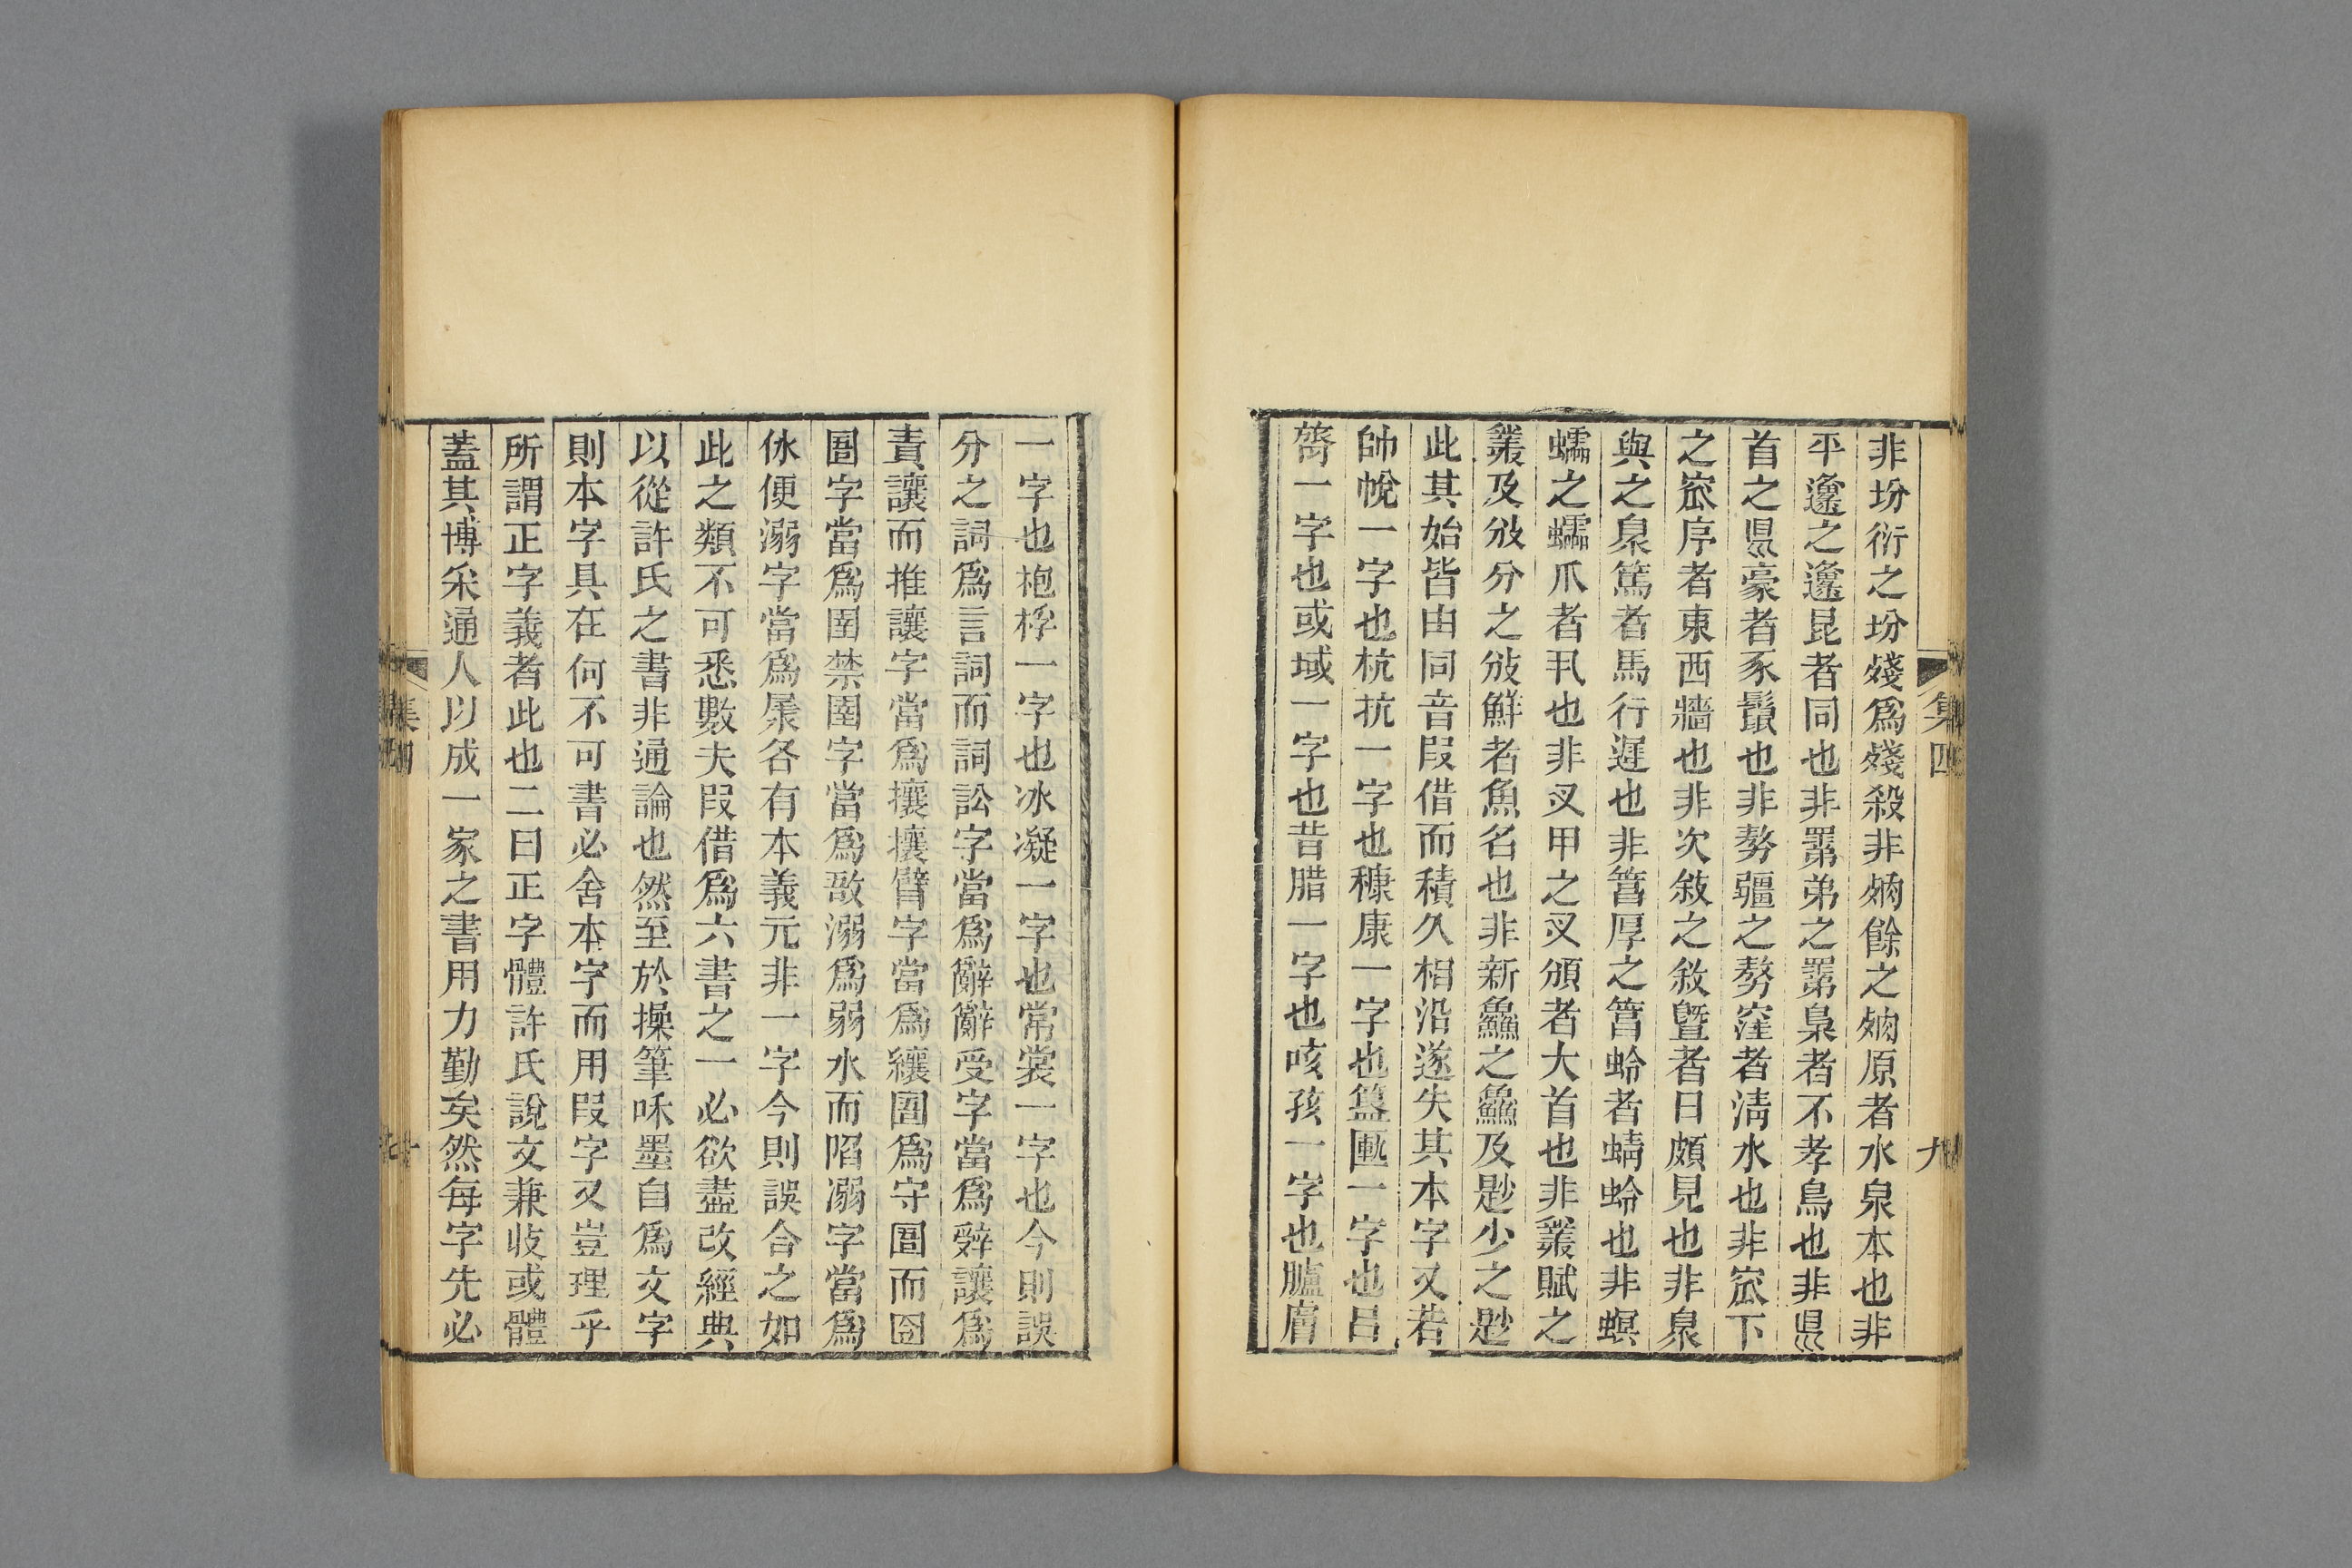 非坋衍之坋殘爲殘殺非𣨼餘之𣨼原者水泉本也非
平邍之邍昆者同也非䍞弟之䍞梟者不孝鳥也非㬎
首之㬎豪者豕鬣也非勢彊之勢窪者淸水也非窊下
之窊序者東西牆也非次敘之敘曁者日頗見也非臮
與之臮篤者馬行遲也非䈞厚之䈞蛉者蜻蛉也非螟
蠕之蠕爪者丮也非叉甲之叉頒者大首也非叢賦之
叢及攽分之攽鮮者魚名也非新鱻之鱻及尟少之尟
此其始皆由同音叚借而積久相沿遂失其本字又若
帥帨一字也杭抗一字也穅康一字也簋匭一字也呂
膂一字也或域一字也昔腊一字也咳孩一字也臚膚
集四
九
一字也枹桴一字也冰凝一字也常裳一字也今則誤
分之詞爲言詞而詞訟字當爲辭辭受字當爲辤讓爲
責讓而推讓字當爲攘攘臂字當爲纕圄爲守圄而囹
圄字當爲圉禁圉字當爲敔溺爲弱水而陷溺字當爲
㲻便溺字當爲㞙各有本義元非一字今則誤合之如
此之類不可悉數夫叚借爲六書之一必欲盡改經典
以從許氏之書非通論也然至於操筆和墨自爲文字
則本字具在何不可書必舍本字而用叚字又豈理乎
所謂正字義者此也二曰正字體許氏說文兼收或體
蓋其博采通人以成一家之書用力勤矣然每字先必
集四
十